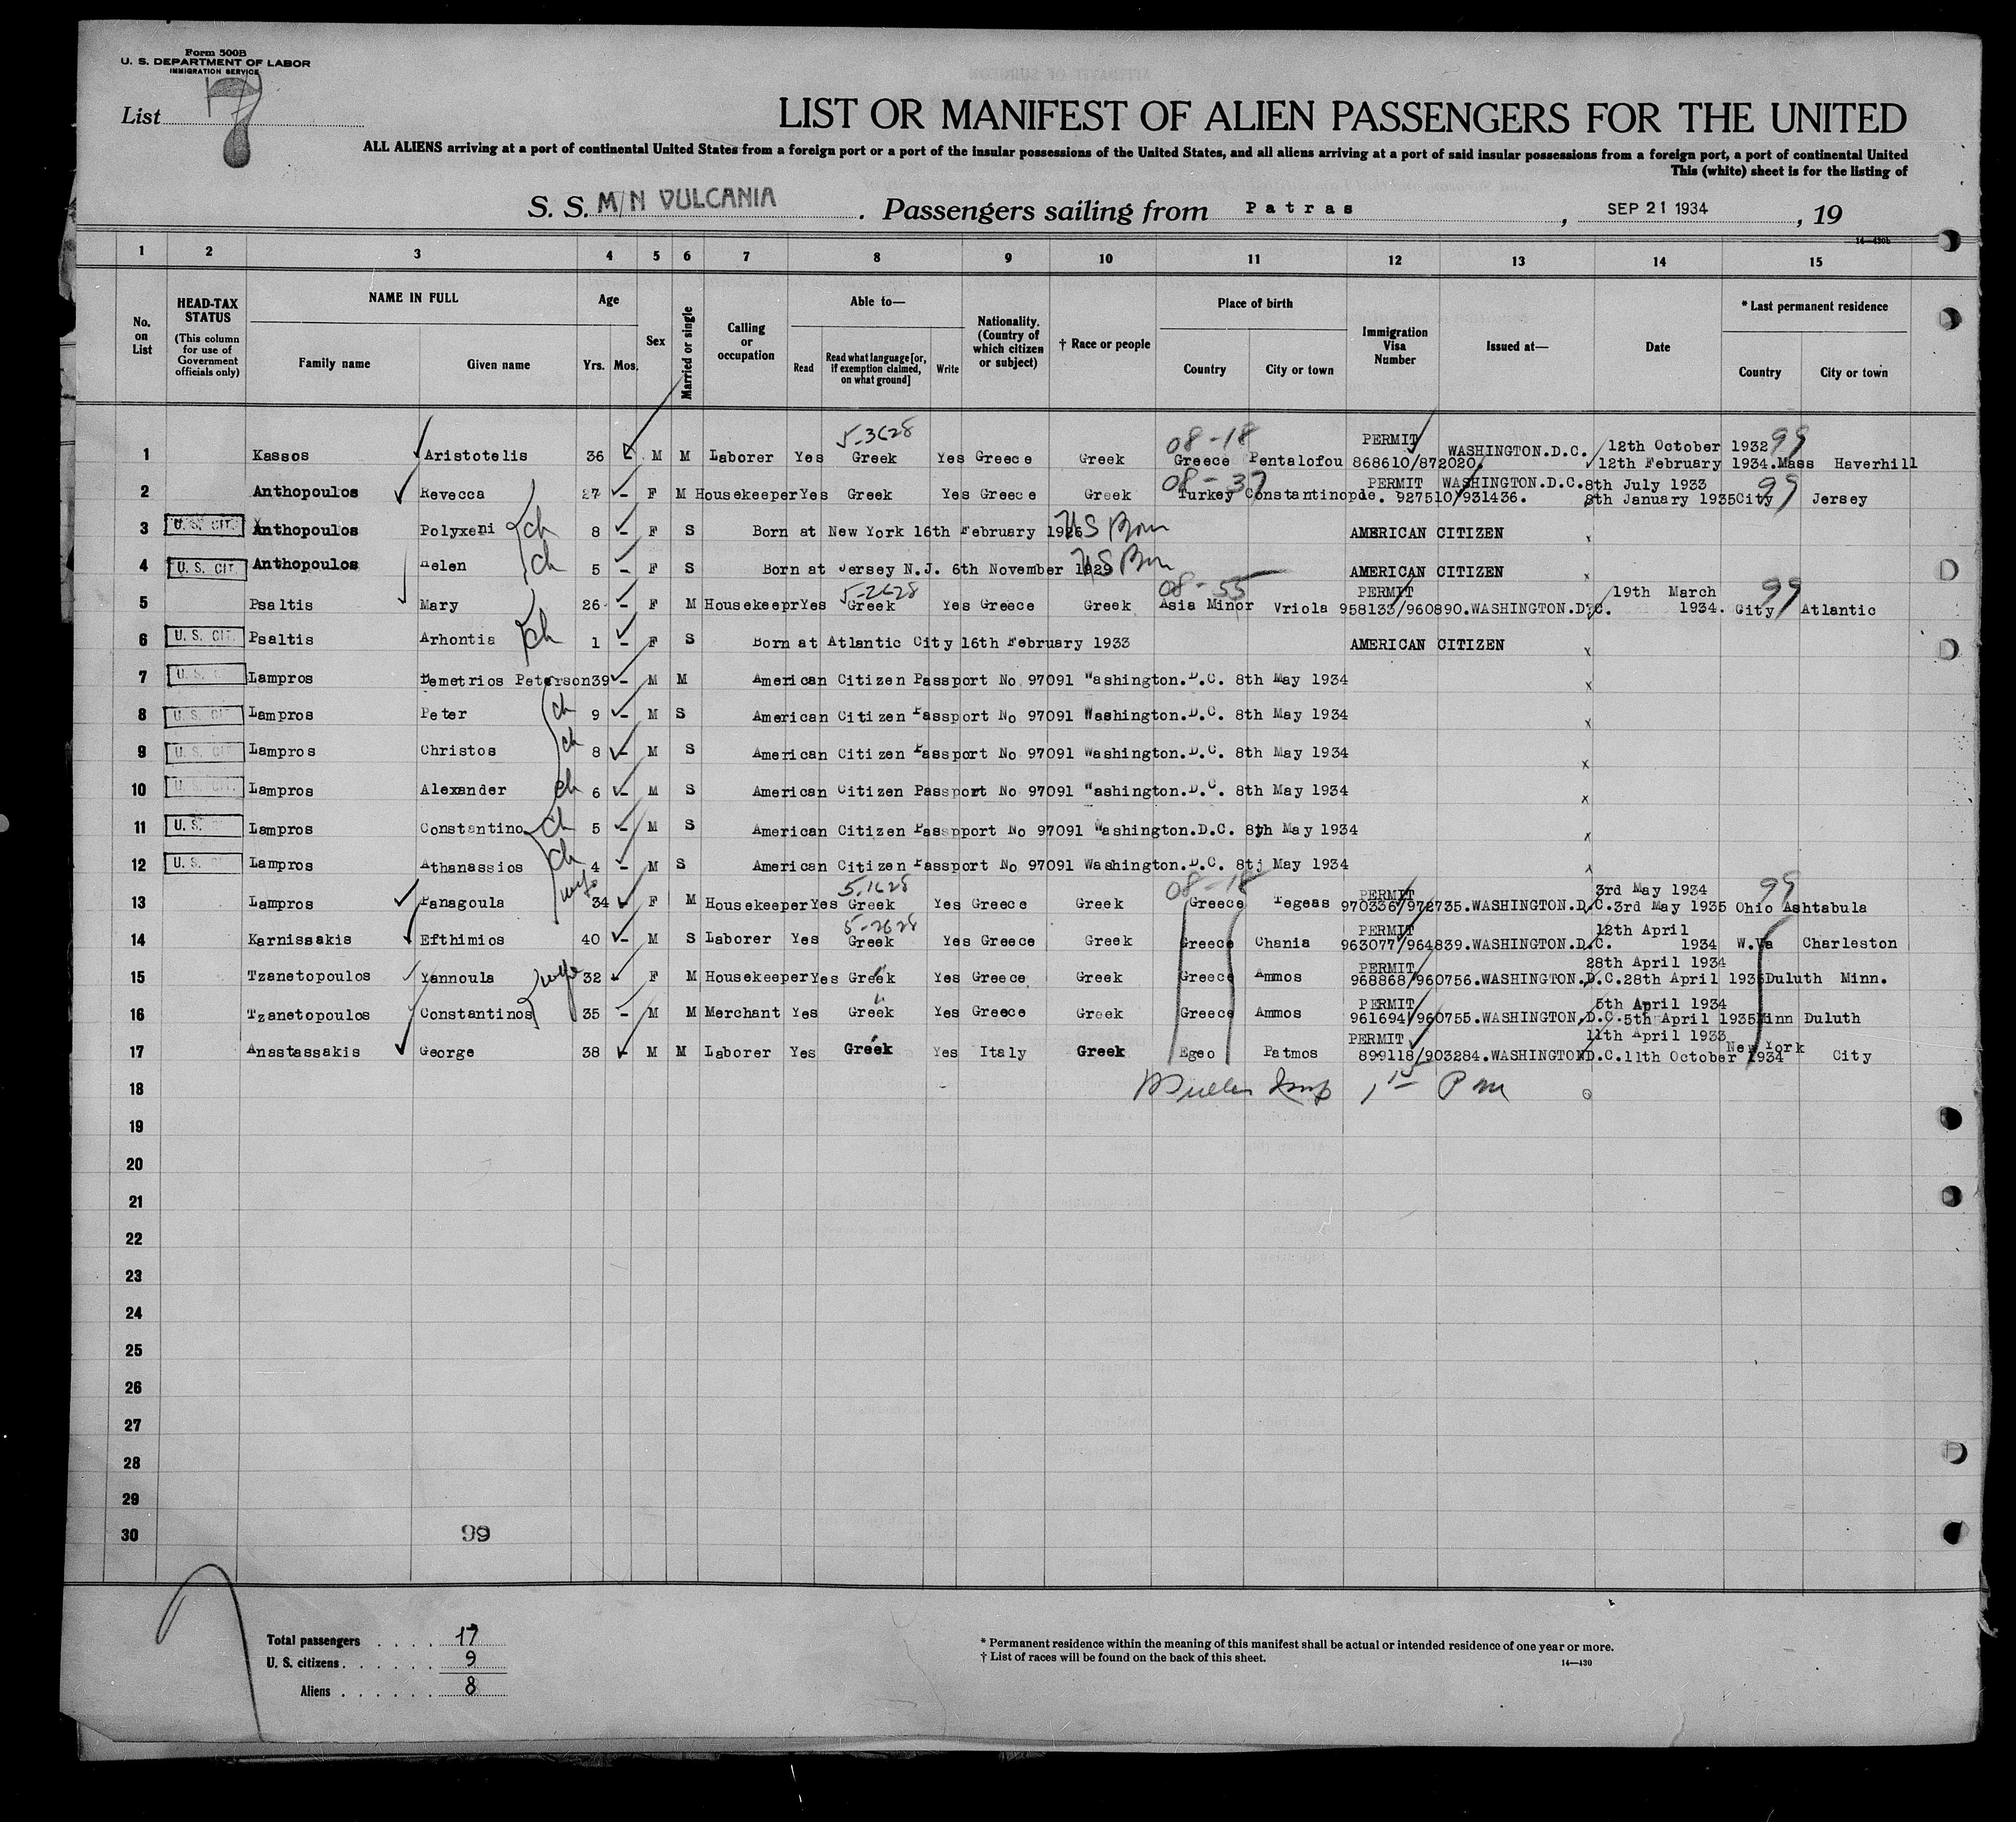 Form 500B
U. S. DEPARTMENT OF LABOR
IMMIGRATION SERVICE
List 7
LIST OR MANIFEST OF ALIEN PASSENGERS FOR THE UNITED
ALL ALIENS arriving at a port of continental United States from a foreign port or a port of the insular possessions of the United States, and all aliens arriving at a port of said insular possessions from a foreign port, a port of continental United
This (white) sheet is for the listing of
S. S. M/N VULCANIA . Passengers sailing from Patras , SEP 21 1934 , 19
14—430b
1 2 3 4 5 6 7 8 9 10 11 12 13 14 15
No. on List
HEAD-TAX STATUS (This column for use of Government officials only)
NAME IN FULL Family name Given name
Age Yrs. Mos.
Sex
Married or single
Calling or occupation
Able to— Read Read what language [or, if exemption claimed, on what ground] Write
Nationality. (Country of which citizen or subject)
† Race or people
Place of birth Country City or town
Immigration Visa Number
Issued at—
Date
* Last permanent residence Country City or town
5-3628 08-18 PERMIT 12th October 1932 99
1 Kassos Aristotelis 36 - M M Laborer Yes Greek Yes Greece Greek Greece Pentalofou 868610/872020. WASHINGTON.D.C. 12th February 1934. Mass Haverhill
08-37 PERMIT WASHINGTON.D.C. 8th July 1933 99
2 Anthopoulos Revecca 27 - F M Housekeeper Yes Greek Yes Greece Greek Turkey Constantinople. 927510/931436. 8th January 1935 City Jersey
3 U. S. CIT. Anthopoulos Polyxeni ch 8 - F S Born at New York 16th February 1926 US Born AMERICAN CITIZEN x
4 U. S. CIT. Anthopoulos Helen ch 5 - F S Born at Jersey N.J. 6th November 1929 US Born AMERICAN CITIZEN x
5-2628 08-55 PERMIT 19th March 99
5 Psaltis Mary 26 - F M Housekeepr Yes Greek Yes Greece Greek Asia Minor Vriola 958133/960890. WASHINGTON.D.C. 1934. City Atlantic
6 U. S. CIT. Psaltis Arhontia ch 1 - F S Born at Atlantic City 16th February 1933 AMERICAN CITIZEN x
7 U. S. Lampros Demetrios Peterson 39 - M M American Citizen Passport No 97091 Washington.D.C. 8th May 1934 x
8 U. S. CIT Lampros Peter ch 9 - M S American Citizen Passport No 97091 Washington.D.C. 8th May 1934 x
9 U. S. CIT Lampros Christos ch 8 - M S American Citizen Passport No 97091 Washington.D.C. 8th May 1934 x
10 U. S. CIT. Lampros Alexander ch 6 - M S American Citizen Passport No 97091 Washington.D.C. 8th May 1934 x
11 U. S. Lampros Constantino ch 5 - M S American Citizen Passpport No 97091 Washington.D.C. 8th May 1934 x
12 U. S. Lampros Athanassios ch 4 - M S American Citizen Passport No 97091 Washington.D.C. 8tj May 1934 x
5-1628 08-18 PERMIT 3rd May 1934 99
13 Lampros Panagoula wife 34 F M Housekeeper Yes Greek Yes Greece Greek Greece Tegeas 970336/972735. WASHINGTON.D.C. 3rd May 1935 Ohio Ashtabula
5-2628 PERMIT 12th April
14 Karnissakis Efthimios 40 - M S Laborer Yes Greek Yes Greece Greek Greece Chania 963077/964839. WASHINGTON.D.C. 1934 W.Va Charleston
PERMIT 28th April 1934
15 Tzanetopoulos Yannoula wife 32 F M Housekeeper Yes Greek Yes Greece Greek Greece Ammos 968868/960756. WASHINGTON.D.C. 28th April 1935 Duluth Minn.
PERMIT 5th April 1934
16 Tzanetopoulos Constantinos 35 - M M Merchant Yes Greek Yes Greece Greek Greece Ammos 961694/960755. WASHINGTON.D.C. 5th April 1935 Minn Duluth
PERMIT 11th April 1933 New York
17 Anastassakis George 38 - M M Laborer Yes Greek Yes Italy Greek Egeo Patmos 899118/903284. WASHINGTOND.C. 11th October 1934 City
18
19
20
21
22
23
24
25
26
27
28
29
30 99
Total passengers . . . . 17
U. S. citizens . . . . . . 9
Aliens . . . . . . 8
* Permanent residence within the meaning of this manifest shall be actual or intended residence of one year or more.
† List of races will be found on the back of this sheet.
14—430